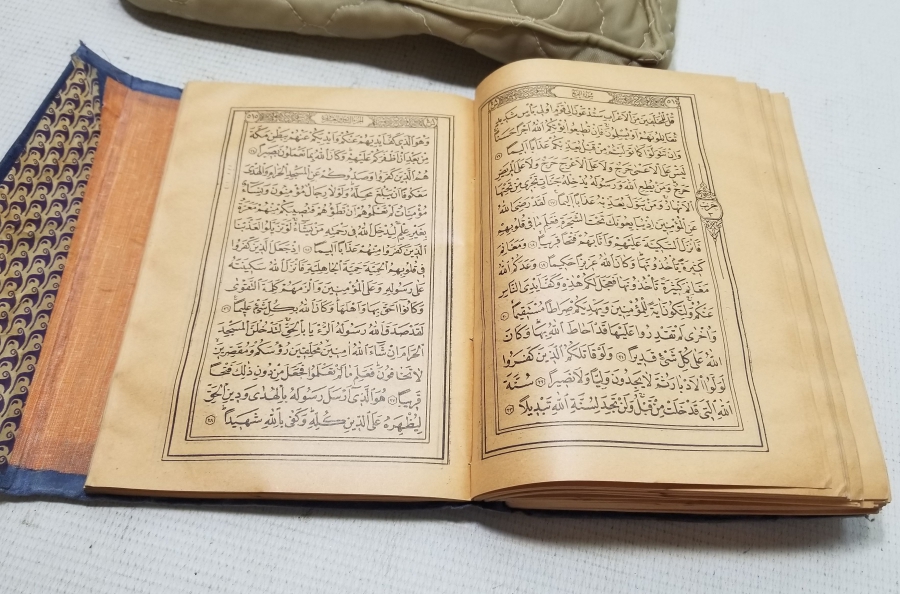 سُورَةُ الْفَتْحِ
قُلْ لِلْمُخَلَّفِينَ مِنَ الْاَعْرَابِ سَتُدْعَوْنَ اِلٰى قَوْمٍ اُولِى بَأْسٍ شَدِيدٍ
تُقَاتِلُونَهُمْ اَوْ يُسْلِمُونَ فَاِنْ تُطِيعُوا يُؤْتِكُمُ اللّٰهُ اَجْرًا حَسَنًا
وَاِنْ تَتَوَلَّوْا كَمَا تَوَلَّيْتُمْ مِنْ قَبْلُ يُعَذِّبْكُمْ عَذَابًا اَلِيمًا ١٦
لَيْسَ عَلَى الْاَعْمٰى حَرَجٌ وَلَا عَلَى الْاَعْرَجِ حَرَجٌ وَلَا عَلَى الْمَرِيضِ
حَرَجٌ وَمَنْ يُطِعِ اللّٰهَ وَرَسُولَهُ يُدْخِلْهُ جَنَّاتٍ تَجْرِى مِنْ تَحْتِهَا
الْاَنْهَارُ وَمَنْ يَتَوَلَّ يُعَذِّبْهُ عَذَابًا اَلِيمًا ١٧ لَقَدْ رَضِىَ اللّٰهُ
عَنِ الْمُؤْمِنِينَ اِذْ يُبَايِعُونَكَ تَحْتَ الشَّجَرَةِ فَعَلِمَ مَا فِى قُلُوبِهِمْ
فَاَنْزَلَ السَّكِينَةَ عَلَيْهِمْ وَاَثَابَهُمْ فَتْحًا قَرِيبًا ١٨ وَمَغَانِمَ
كَثِيرَةً يَأْخُذُونَهَا وَكَانَ اللّٰهُ عَزِيزًا حَكِيمًا ١٩ وَعَدَكُمُ اللّٰهُ
مَغَانِمَ كَثِيرَةً تَأْخُذُونَهَا فَعَجَّلَ لَكُمْ هٰذِهِ وَكَفَّ اَيْدِىَ النَّاسِ
عَنْكُمْ وَلِتَكُونَ اٰيَةً لِلْمُؤْمِنِينَ وَيَهْدِيَكُمْ صِرَاطًا مُسْتَقِيمًا ٢٠
وَاُخْرٰى لَمْ تَقْدِرُوا عَلَيْهَا قَدْ اَحَاطَ اللّٰهُ بِهَا وَكَانَ
اللّٰهُ عَلٰى كُلِّ شَىْءٍ قَدِيرًا ٢١ وَلَوْ قَاتَلَكُمُ الَّذِينَ كَفَرُوا
لَوَلَّوُا الْاَدْبَارَ ثُمَّ لَا يَجِدُونَ وَلِيًّا وَلَا نَصِيرًا ٢٢ سُنَّةَ
اللّٰهِ الَّتِى قَدْ خَلَتْ مِنْ قَبْلُ وَلَنْ تَجِدَ لِسُنَّةِ اللّٰهِ تَبْدِيلًا ٢٣
حزب
وَهُوَ الَّذِى كَفَّ اَيْدِيَهُمْ عَنْكُمْ وَاَيْدِيَكُمْ عَنْهُمْ بِبَطْنِ مَكَّةَ
مِنْ بَعْدِ اَنْ اَظْفَرَكُمْ عَلَيْهِمْ وَكَانَ اللّٰهُ بِمَا تَعْمَلُونَ بَصِيرًا ٢٤
هُمُ الَّذِينَ كَفَرُوا وَصَدُّوكُمْ عَنِ الْمَسْجِدِ الْحَرَامِ وَالْهَدْىَ
مَعْكُوفًا اَنْ يَبْلُغَ مَحِلَّهُ وَلَوْلَا رِجَالٌ مُؤْمِنُونَ وَنِسَاءٌ
مُؤْمِنَاتٌ لَمْ تَعْلَمُوهُمْ اَنْ تَطَؤُهُمْ فَتُصِيبَكُمْ مِنْهُمْ مَعَرَّةٌ
بِغَيْرِ عِلْمٍ لِيُدْخِلَ اللّٰهُ فِى رَحْمَتِهِ مَنْ يَشَاءُ لَوْ تَزَيَّلُوا لَعَذَّبْنَا
الَّذِينَ كَفَرُوا مِنْهُمْ عَذَابًا اَلِيمًا ٢٥ اِذْ جَعَلَ الَّذِينَ كَفَرُوا
فِى قُلُوبِهِمُ الْحَمِيَّةَ حَمِيَّةَ الْجَاهِلِيَّةِ فَاَنْزَلَ اللّٰهُ سَكِينَتَهُ
عَلٰى رَسُولِهِ وَعَلَى الْمُؤْمِنِينَ وَاَلْزَمَهُمْ كَلِمَةَ التَّقْوٰى
وَكَانُوا اَحَقَّ بِهَا وَاَهْلَهَا وَكَانَ اللّٰهُ بِكُلِّ شَىْءٍ عَلِيمًا ٢٦
لَقَدْ صَدَقَ اللّٰهُ رَسُولَهُ الرُّءْيَا بِالْحَقِّ لَتَدْخُلُنَّ الْمَسْجِدَ
الْحَرَامَ اِنْ شَاءَ اللّٰهُ اٰمِنِينَ مُحَلِّقِينَ رُؤُسَكُمْ وَمُقَصِّرِينَ
لَا تَخَافُونَ فَعَلِمَ مَا لَمْ تَعْلَمُوا فَجَعَلَ مِنْ دُونِ ذٰلِكَ فَتْحًا
قَرِيبًا ٢٧ هُوَ الَّذِى اَرْسَلَ رَسُولَهُ بِالْهُدٰى وَدِينِ الْحَقِّ
لِيُظْهِرَهُ عَلَى الدِّينِ كُلِّهِ وَكَفٰى بِاللّٰهِ شَهِيدًا ٢٨